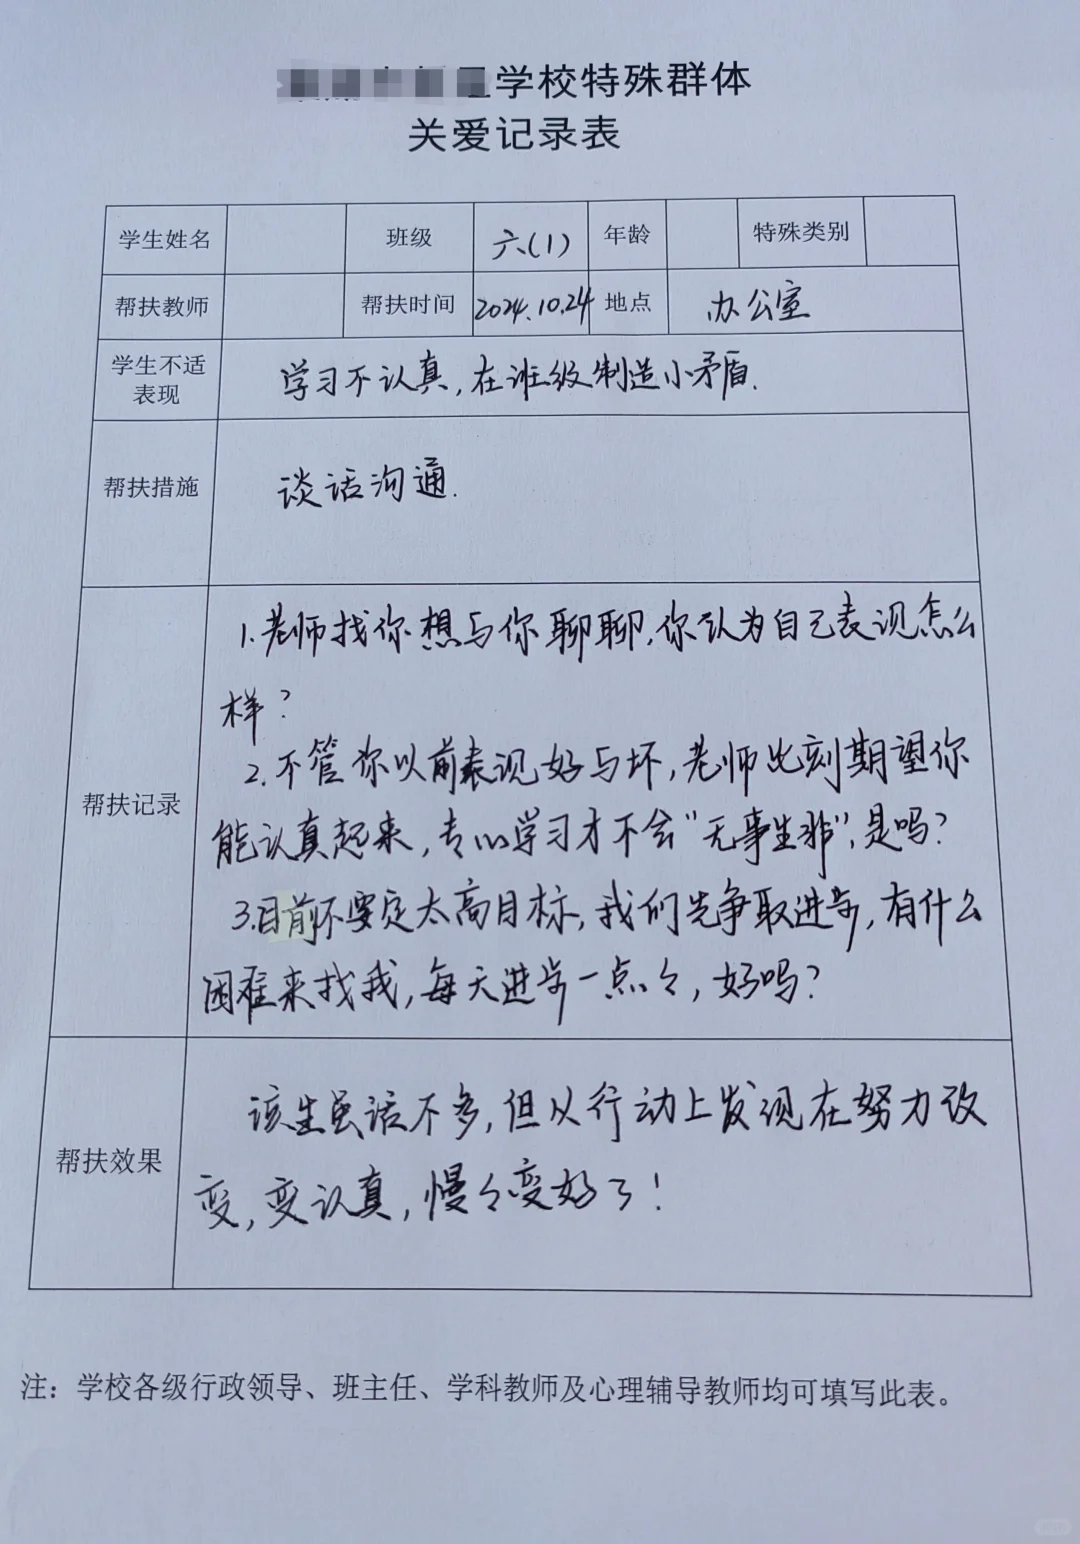 学校特殊群体
关爱记录表
学生姓名 班级 六(1) 年龄 特殊类别
帮扶教师 帮扶时间 2024.10.24 地点 办公室
学生不适
表现
学习不认真,在班级制造小矛盾.
帮扶措施
谈话沟通.
帮扶记录
1.老师找你想与你聊聊,你认为自己表现怎么
样?
2.不管你以前表现好与坏,老师此刻期望你
能认真起来,专心学习才不会"无事生非",是吗?
3.目前不要定太高目标,我们先争取进步,有什么
困难来找我,每天进步一点々,好吗?
帮扶效果
该生虽话不多,但从行动上发现在努力改
变,变认真,慢々变好了!
注：学校各级行政领导、班主任、学科教师及心理辅导教师均可填写此表。